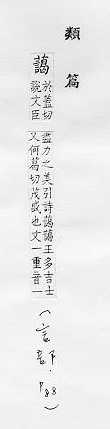 類篇
譪
於蓋切
說文臣
盡力之美引詩譪譪王多吉士
又何葛切茂盛也文一重音一
(言部下.P88)